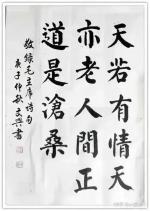 天若有情天
亦老人間正
道是滄桑
敬錄毛主席詩句
庚子仲秋文興書